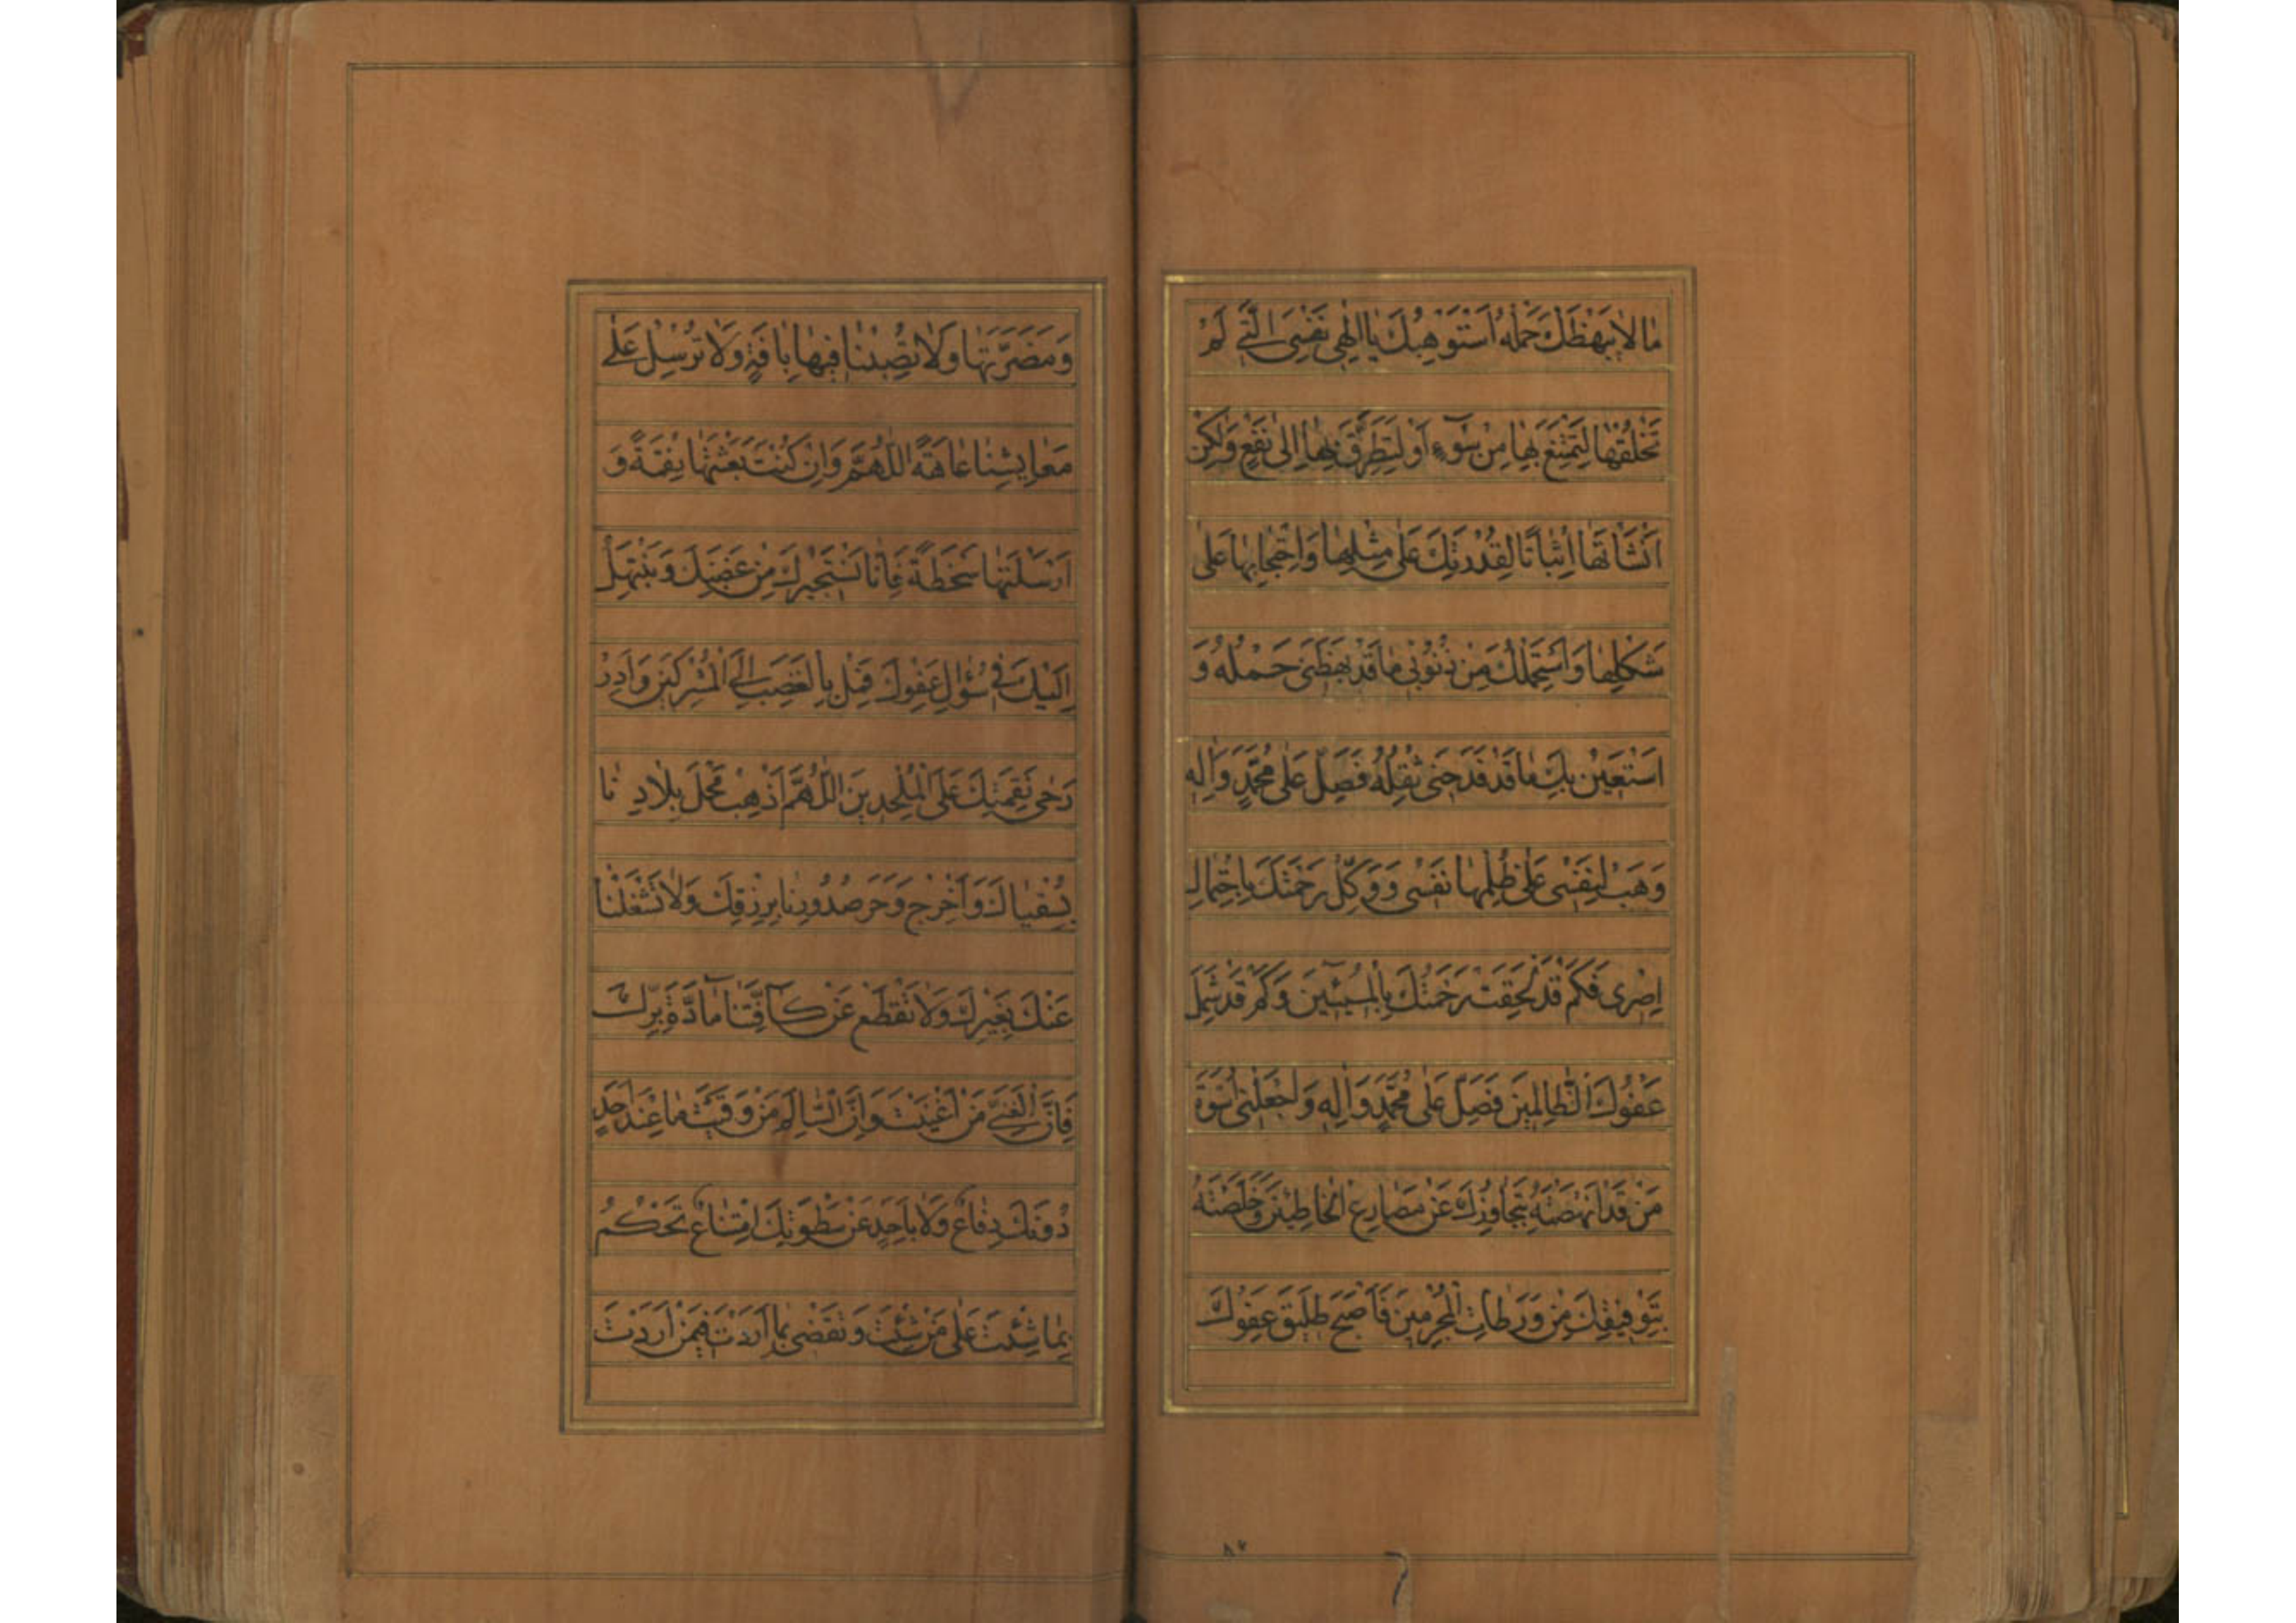 مَا لَا يَبْهَظُكَ حَمْلُهُ اَسْتَوْهِبُكَ يَا اِلٰهِى نَفْسِىَ الَّتِى لَمْ
تَخْلُقْهَا لِتَمْتَنِعَ بِهَا مِنْ سُوۤءٍ اَوْ لِتَطَرَّقَ بِهَا اِلىٰ نَفْعٍ وَلٰكِنْ
اَنْشَأْتَهَا اِثْبَاتًا لِقُدْرَتِكَ عَلىٰ مِثْلِهَا وَاحْتِجَاجًا بِهَا عَلىٰ
شَكْلِهَا وَاَسْتَحْمِلُكَ مِنْ ذُنُوبِى مَا قَدْ بَهَظَنِى حَمْلُهُ وَ
اَسْتَعِينُ بِكَ مَا قَدْ فَدَحَنِى ثِقْلُهُ فَصَلِّ عَلىٰ مُحَمَّدٍ وَاٰلِهِ
وَهَبْ لِنَفْسِى عَلىٰ ظُلْمِهَا نَفْسِى وَوَكِّلْ رَحْمَتَكَ بِاحْتِمَالِ
اِصْرِى فَكَمْ قَدْ لَحِقَتْ رَحْمَتُكَ بِالْمُسِيۤئِينَ وَكَمْ قَدْ شَمِلَ
عَفْوُكَ الظَّالِمِينَ فَصَلِّ عَلىٰ مُحَمَّدٍ وَاٰلِهِ وَاجْعَلْنِى اُسْوَةَ
مَنْ قَدْ اَنْهَضْتَهُ بِتَجَاوُزِكَ عَنْ مَصَارِعِ الْخَاطِئِينَ وَخَلَّصْتَهُ
بِتَوْفِيقِكَ مِنْ وَرَطَاتِ الْمُجْرِمِينَ فَاَصْبَحَ طَلِيقَ عَفْوِكَ
وَمَضَرَّتَهَا وَلَا تُصِبْنَا فِيهَا بِاٰفَةٍ وَلَا تُرْسِلْ عَلىٰ
مَعَايِشِنَا عَاهَةً اَللّٰهُمَّ وَاِنْ كُنْتَ بَعَثْتَهَا نِقْمَةً وَ
اَرْسَلْتَهَا سَخْطَةً فَاِنَّا نَسْتَجِيرُكَ مِنْ غَضَبِكَ وَنَبْتَهِلُ
اِلَيْكَ فِى سُؤَالِ عَفْوِكَ فَمِلْ بِالْغَضَبِ اِلَى الْمُشْرِكِينَ وَاَدِرْ
رَحىٰ نَقِمَتِكَ عَلَى الْمُلْحِدِينَ اَللّٰهُمَّ اَذْهِبْ مَحْلَ بِلَادِنَا
بِسُقْيَاكَ وَاَخْرِجْ وَحَرَ صُدُورِنَا بِرِزْقِكَ وَلَا تَشْغَلْنَا
عَنْكَ بِغَيْرِكَ وَلَا تَقْطَعْ عَنْ كَاۤفَّتِنَا مَاۤدَّةَ بِرِّكَ
فَاِنَّ الْغَنِىَّ مَنْ اَغْنَيْتَ وَاِنَّ السَّالِمَ مَنْ وَقَيْتَ مَا عِنْدَ اَحَدٍ
دُونَكَ دِفَاعٌ وَلَا بِاَحَدٍ عَنْ سَطْوَتِكَ امْتِنَاعٌ تَحْكُمُ
بِمَا شِئْتَ عَلىٰ مَنْ شِئْتَ وَتَقْضِى بِمَا اَرَدْتَ فِيمَنْ اَرَدْتَ